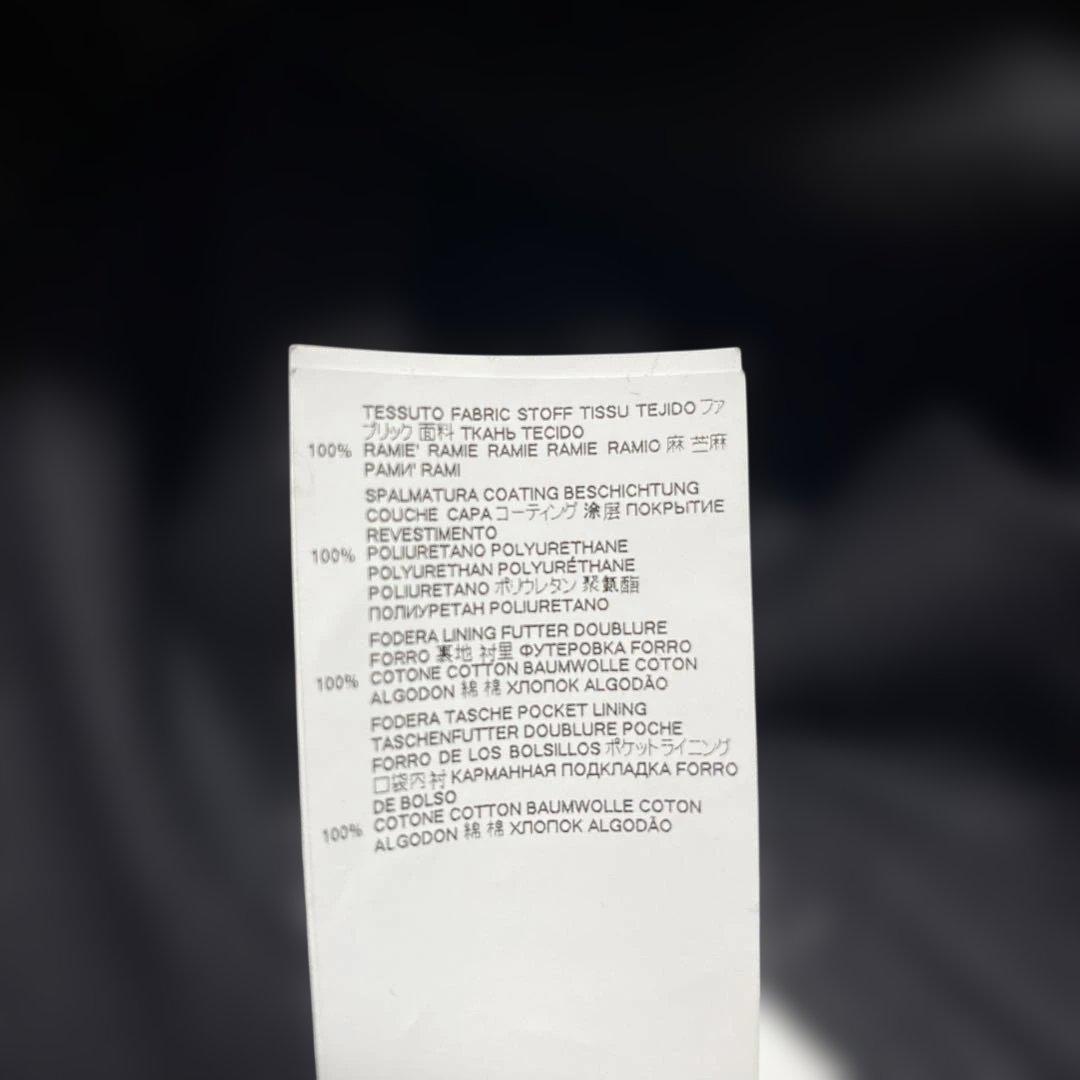 TESSUTO FABRIC STOFF TISSU TEJIDO ファ
ブリック 面料 ТКАНЬ TECIDO
100% RAMIE' RAMIE RAMIE RAMIE RAMIO 麻 苎麻
РАМИ' RAMI
SPALMATURA COATING BESCHICHTUNG
COUCHE CAPA コーティング 涂层 ПОКРЫТИЕ
REVESTIMENTO
100% POLIURETANO POLYURETHANE
POLYURETHAN POLYURÉTHANE
POLIURETANO ポリウレタン 聚氨酯
ПОЛИУРЕТАН POLIURETANO
FODERA LINING FUTTER DOUBLURE
FORRO 裏地 衬里 ФУТЕРОВКА FORRO
100% COTONE COTTON BAUMWOLLE COTON
ALGODON 綿 棉 ХЛОПОК ALGODÃO
FODERA TASCHE POCKET LINING
TASCHENFUTTER DOUBLURE POCHE
FORRO DE LOS BOLSILLOS ポケットライニング
口袋内衬 КАРМАННАЯ ПОДКЛАДКА FORRO
DE BOLSO
100% COTONE COTTON BAUMWOLLE COTON
ALGODON 綿 棉 ХЛОПОК ALGODÃO